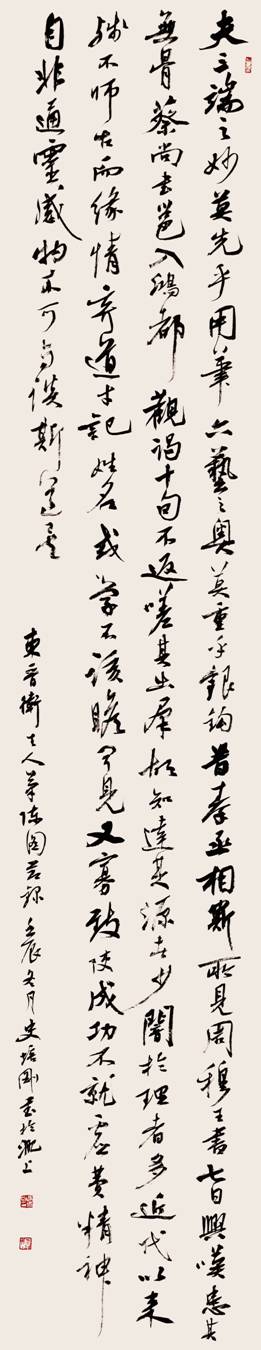 夫三端之妙莫先乎用筆六藝之奧莫重乎銀鉤昔李丞相斯所見周穆王書七日興嘆患其
無骨蔡尚書邕入鴻都觀碣十旬不返嗟其出群故知達其源者少闇於理者多近代以來
殊不師古而緣情弃道才記姓名或學不該贍聞見又寡致使成功不就虛費精神
自非通靈感物不可與談斯道矣
東晉衛夫人筆陣圖節錄壬辰冬月史培剛書於上